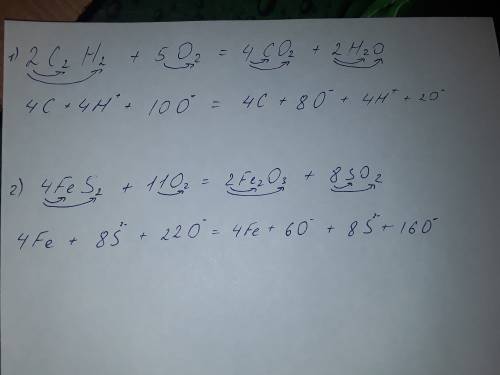 1) 2C₂H₂ + 5O₂ = 4CO₂ + 2H₂O
4C + 4H⁺ + 10O⁻ = 4C + 8O⁻ + 4H⁺ + 2O⁻
2) 4FeS₂ + 11O₂ = 2Fe₂O₃ + 8SO₂
4Fe + 8S²⁻ + 22O⁻ = 4Fe + 6O⁻ + 8S²⁻ + 16O⁻